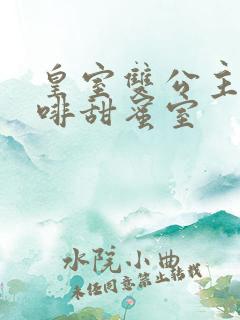 皇室雙公主
啡甜蜜室
水院小曲
未经同意禁止转载